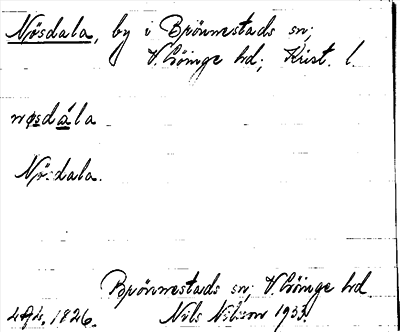 Nösdala, by i Brönnestads sn;
V. Göinge hd; Krist. l.
nøsdála
Nö:sdala.
Brönnestads sn; V. Göinge hd
1826. Nils Nilsson 1933.